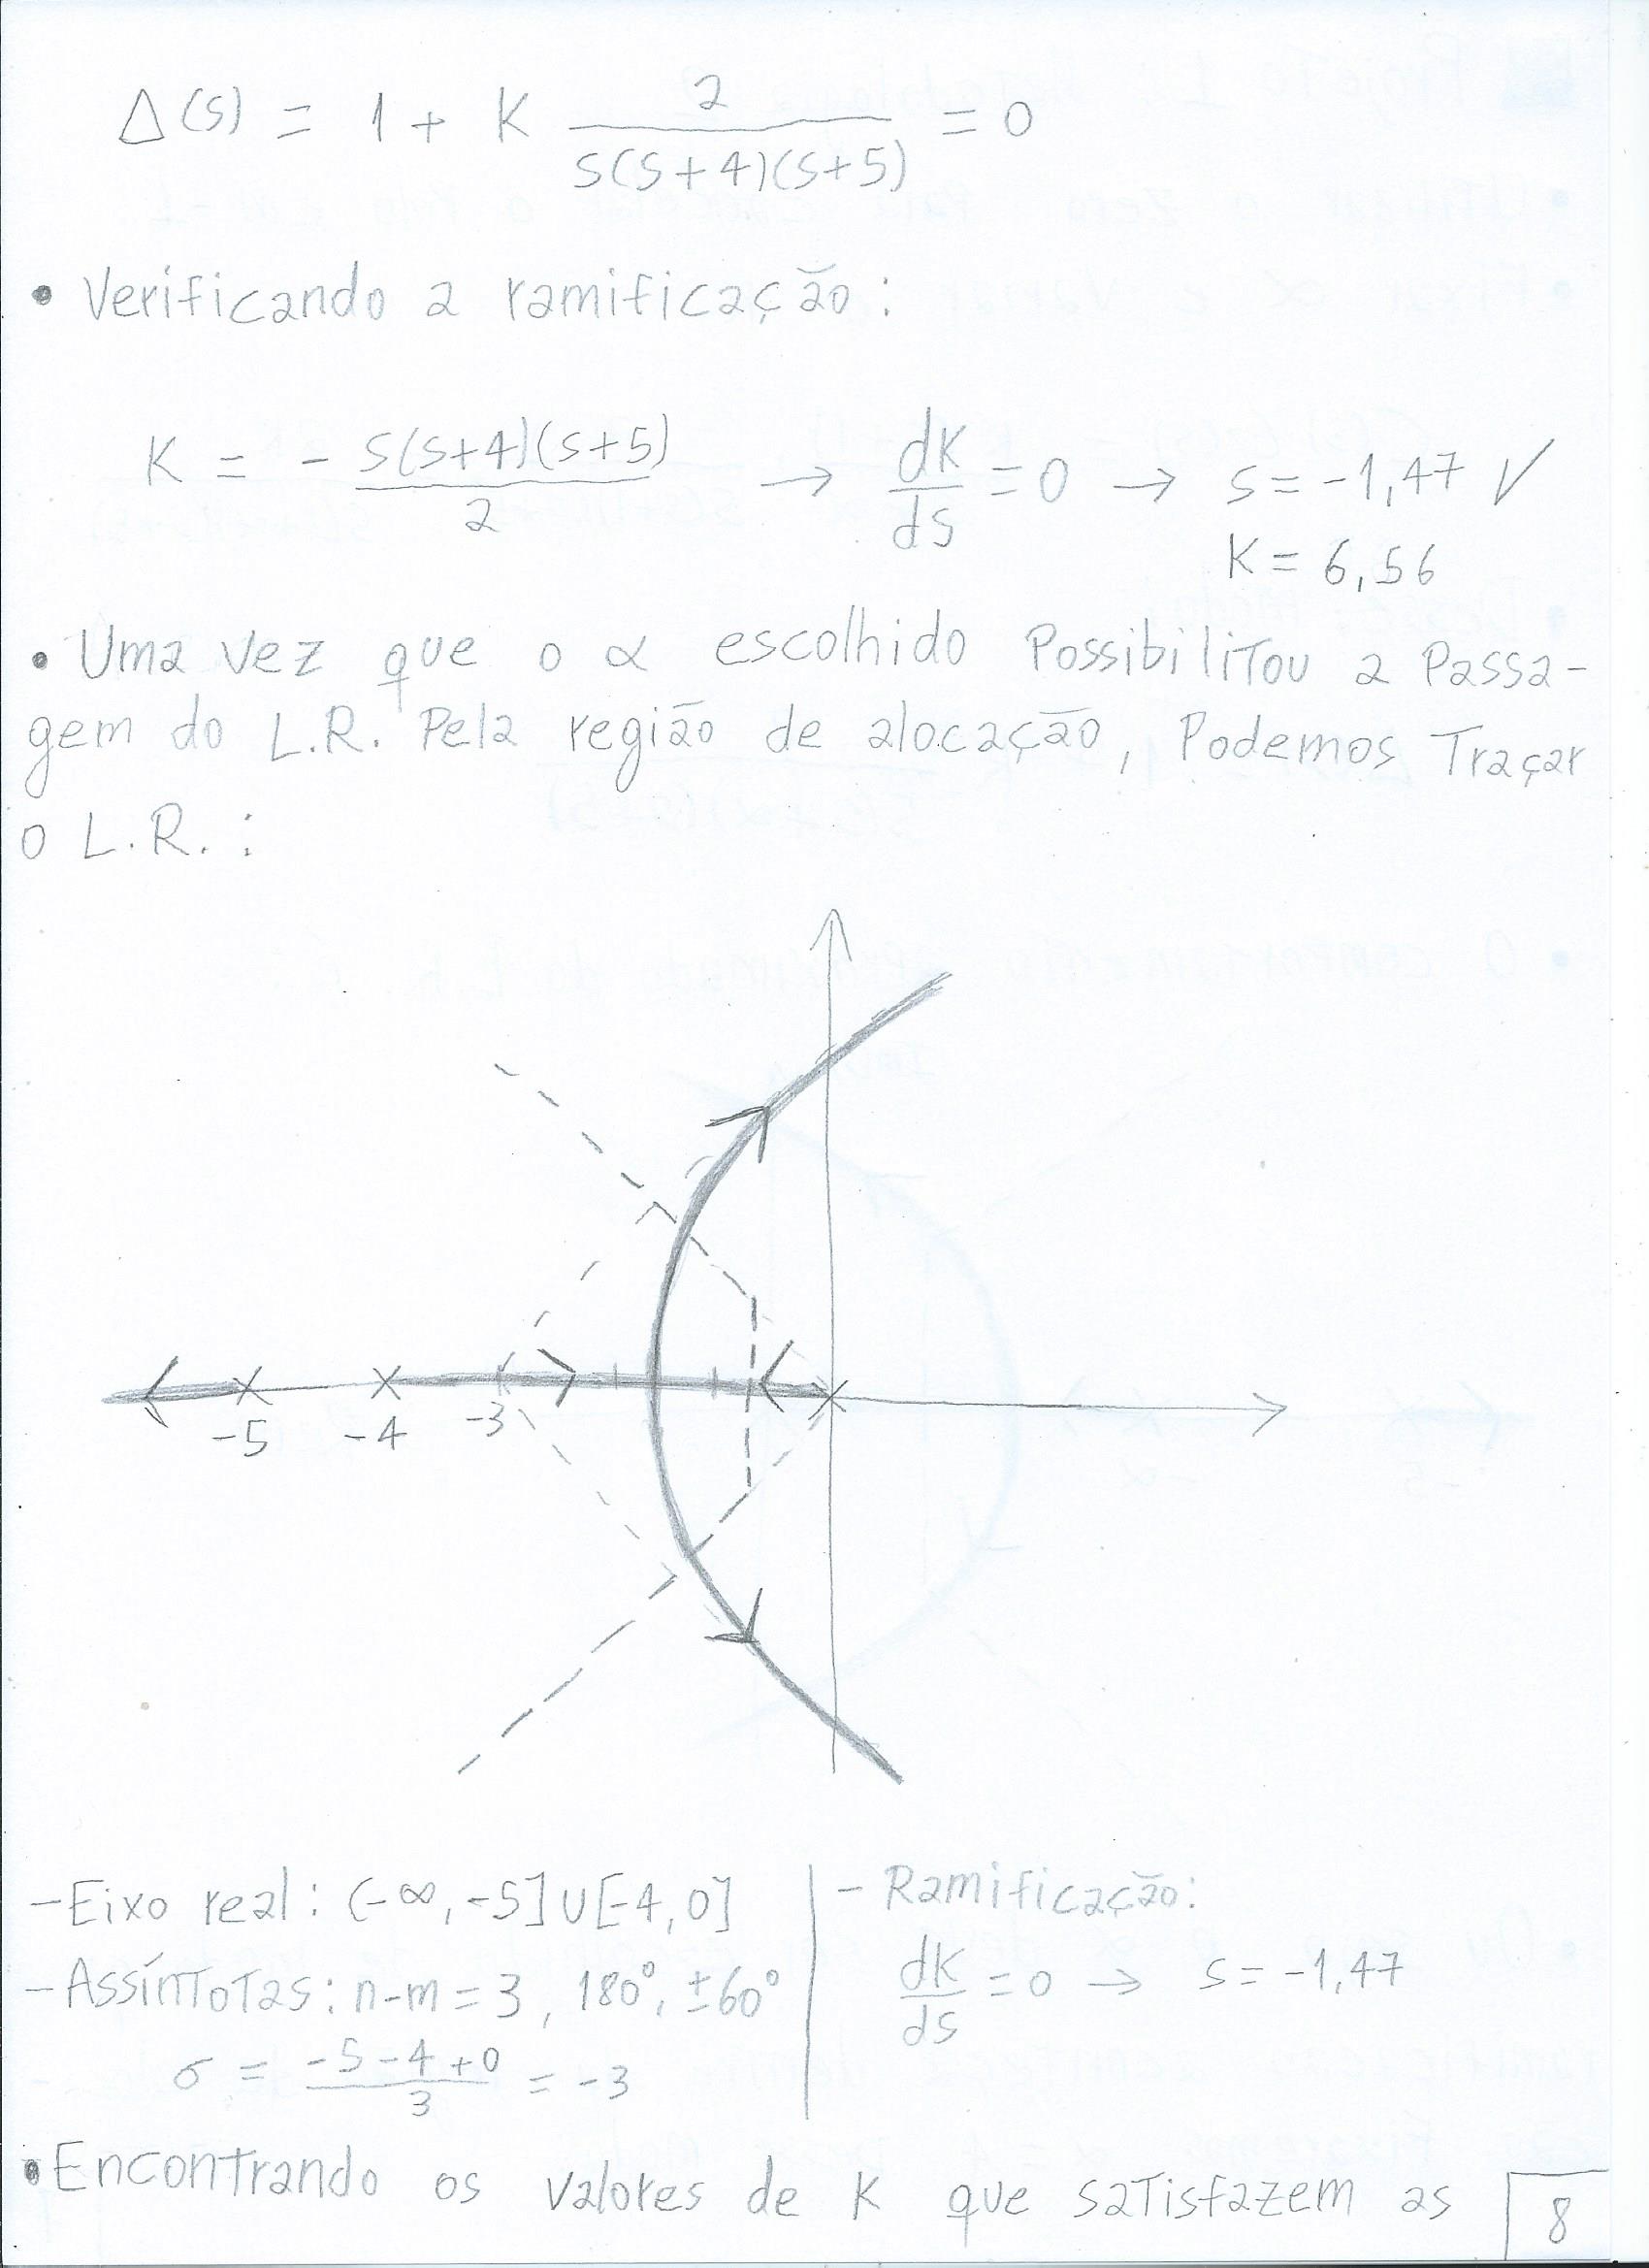 Δ(s) = 1 + K 2/(s(s+4)(s+5)) = 0
• Verificando a ramificação:
K = - s(s+4)(s+5)/2 → dK/ds = 0 → s = -1,47 ✓
K = 6,56
• Uma vez que o α escolhido Possibilitou a Passa-
gem do L.R. Pela região de alocação, Podemos Traçar
o L.R.:
-5 -4 -3
- Eixo real: (-∞, -5] ∪ [-4, 0]
- Assíntotas: n-m = 3, 180°, ±60°
σ = (-5-4+0)/3 = -3
- Ramificação:
dK/ds = 0 → s = -1,47
• Encontrando os valores de K que satisfazem as
8